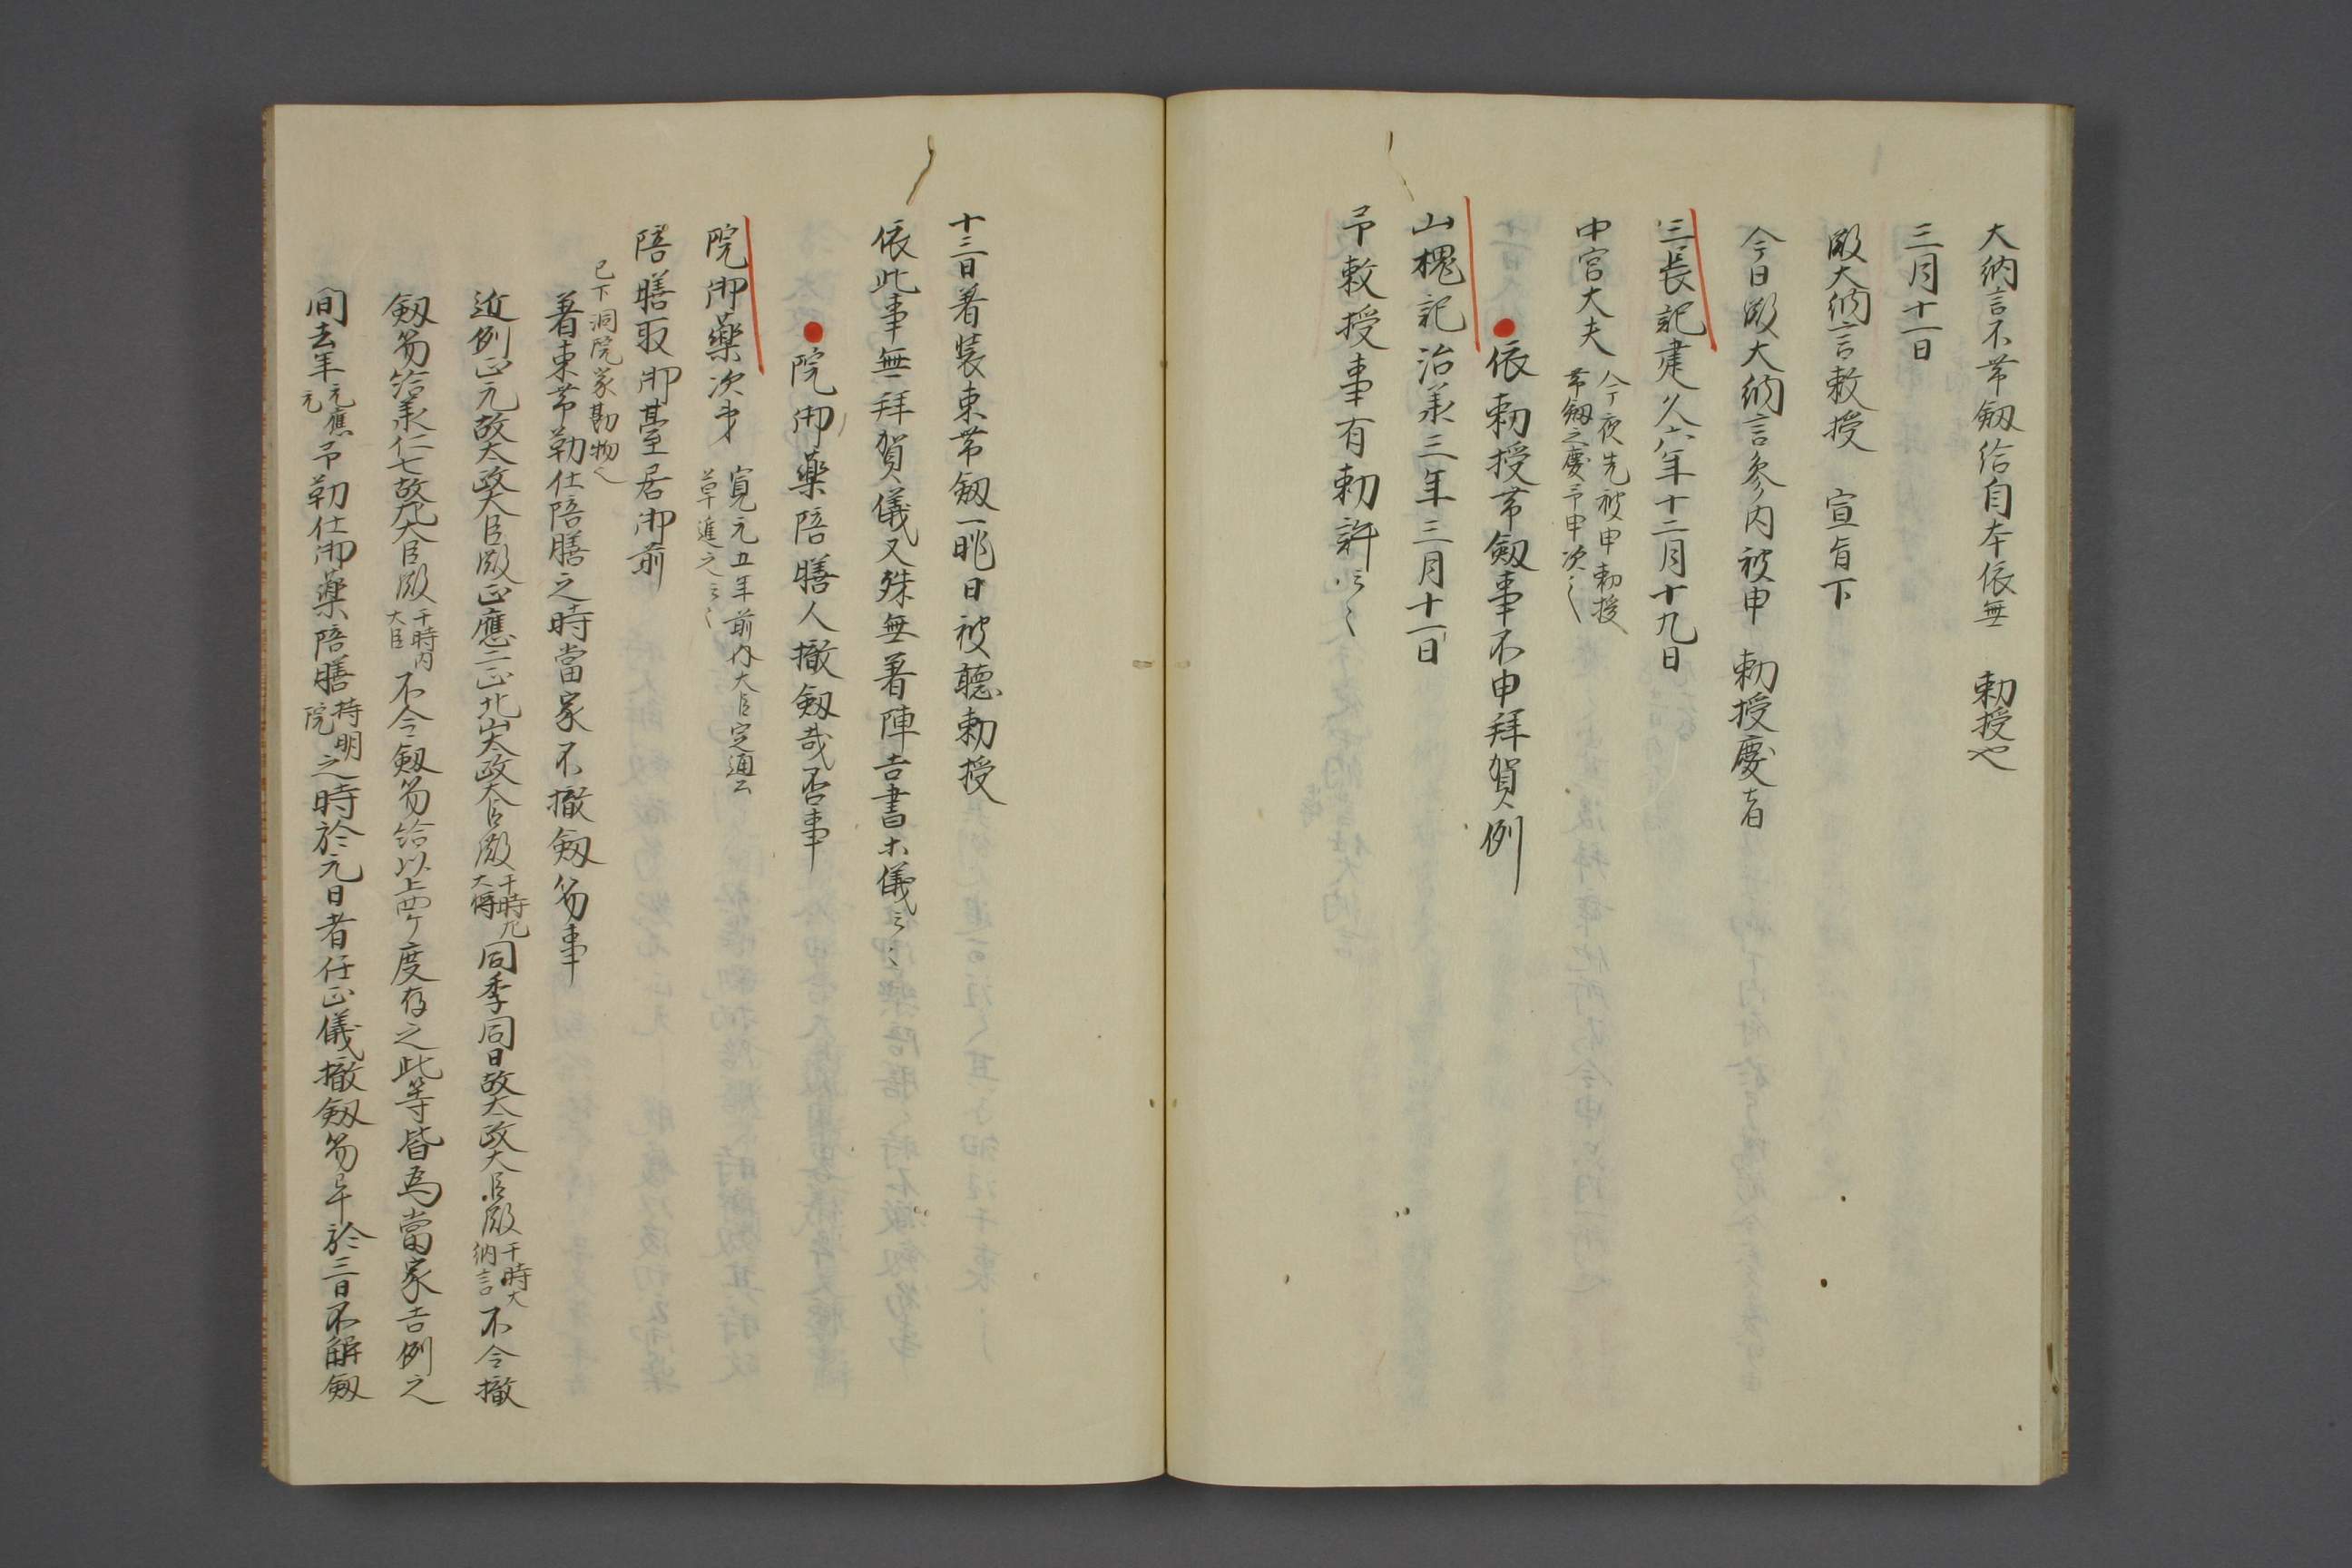 大納言不帯釼給自本依無 勅授也
三月十一日
殿大納言敕授 宣旨下
今日殿大納言参内被申 勅授慶者
三長記建久六年十二月十九日
中宮大夫 今夜先被申勅授
帯釼之慶予申次之
依勅授帯釼事不申拜賀例
山槐記治承三年三月十一日
予敕授事有勅許云々
十三日着装束帯釼一昨日被聴勅授
依此事無拜賀儀又殊無着陣吉書未儀云々
院御藥陪膳人撤釼哉否事
院御藥次第 寛元五年前内大臣定通公
草進之云々
陪膳取御臺居御前
已下洞院家勘物也
着束帯勤仕陪膳之時當家不撤釼笏事
近例正元故太政大臣殿正應二正北山太政大臣殿 于時九
大将 同季同日故太政大臣殿 于時大
納言 不令撤
釼笏給永仁七故九大臣殿 于時内
大臣 不令釼笏給以上四ケ度存之此等皆為當家吉例之
間去年 元應
元 予勤仕御藥陪膳 持明
院 之時於元日者任正儀撤釼笏早於三日不解釼